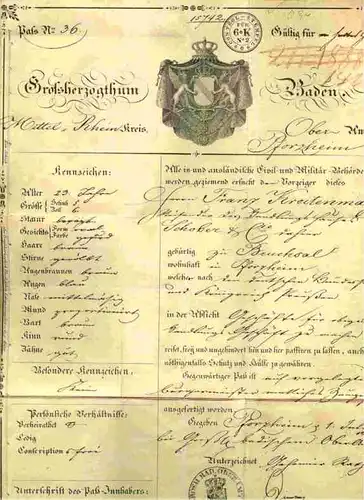 15742
Paß No 36.
6 K
No 2
Gültig für
Großherzogthum
Baden.
Mittel-Rhein-Kreis.
Ober
Pforzheim
Kennzeichen:
Alter 23 Jahre
Größe Schuh 5
Zoll 6
Statur besetzt
Gesichts- Form rund
Farbe gesund
Haare braun
Stirne gewölbt
Augenbraunen braun
Augen blau
Nase mittelmäßig
Mund proportionirt
Bart braun
Kinn rund
Zähne gut
Besondere Kennzeichen.
Kein
Persönliche Verhältnisse
Verheirathet
Ledig
Conscriptions frei
Unterschrift des Paß-Innhabers:
Alle in- und ausländische Civil- und Militär-Behörde
werden geziemend ersucht den Vorzeiger dieses
Herrn Franz
Reisenden des Handlungshauses
& Co. daher
gebürtig zu Bruchsal
wohnhaft in Pforzheim
welcher nach den deutschen
und Königreich Preußen
in der Absicht Geschäfte für obiges
zu machen
reiset, frei und ungehindert hin und her passiren zu lassen, auch
nöthigenfalls Schutz und Hülfe zu gewähren.
Gegenwärtiger Paß ist auf
ausgefertigt worden.
Gegeben Pforzheim
bei Großh. badischem Oberamt
Unterzeichnet